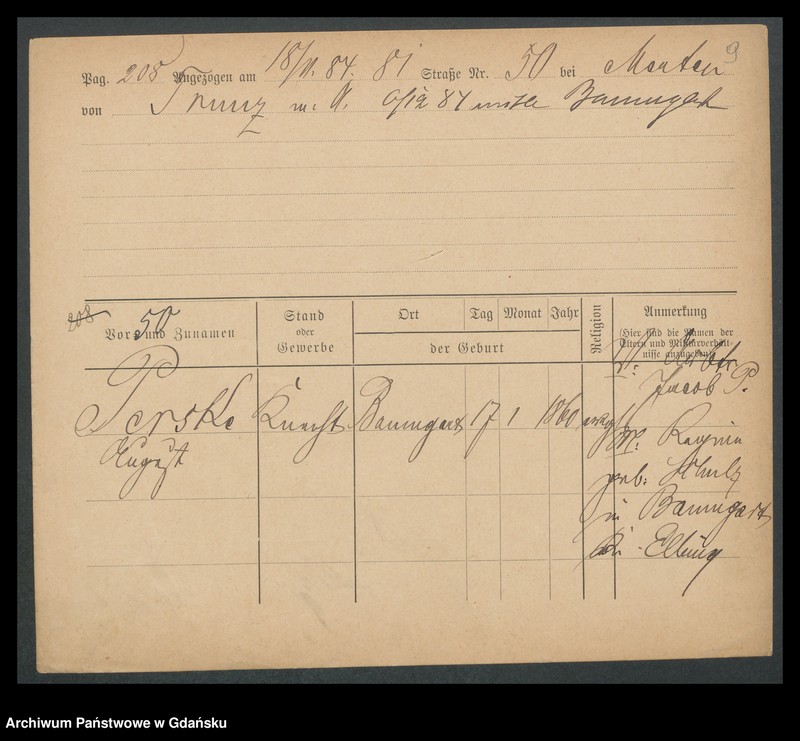 9
Pag. 208 Angezogen am 18/11. 84. 81 Straße Nr. 50 bei
von Trunz m. A. 84 Baumgart
208
50
Vor= und Zunamen
Stand
oder
Gewerbe
Ort Tag Monat Jahr
der Geburt
Religion
Anmerkung
(Hier sind die Namen der
Eltern und Militärverhält=
nisse anzugeben)
V:
Jacob P.
Perske Knecht Baumgart 17 1 1860 evgl
August
M. Regina
geb. Schulz
in Baumgart
Kr. Elbing
Archiwum Państwowe w Gdańsku